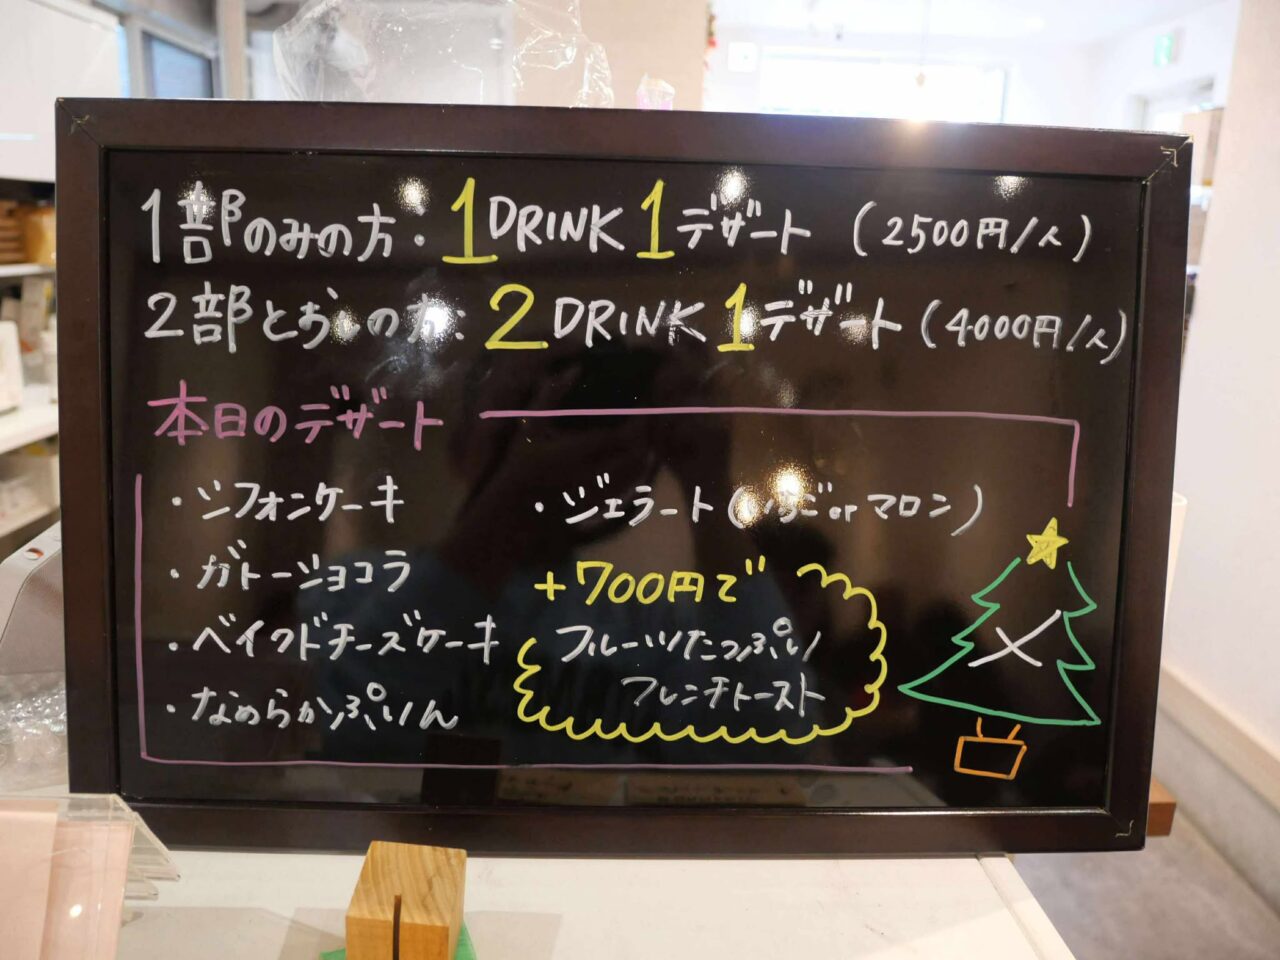 1部のみの方：1DRINK 1デザート (2500円/人)
2部とおしの方：2DRINK 1デザート (4000円/人)
本日のデザート
・シフォンケーキ
・ガトーショコラ
・ベイクドチーズケーキ
・なめらかぷりん
・ジェラート(いちごorマロン)
+700円で
フルーツたっぷり
フレンチトースト